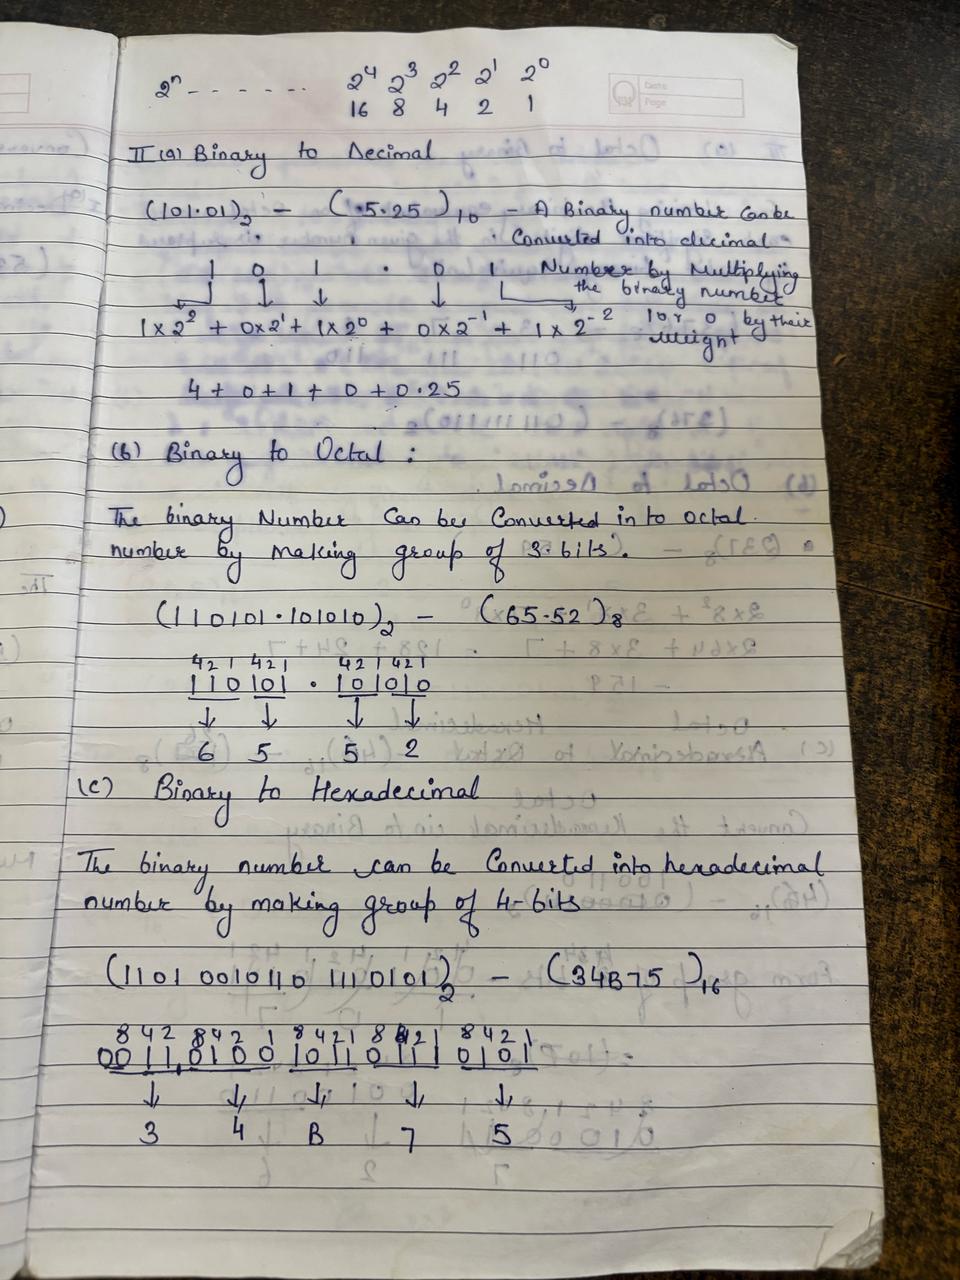 2ⁿ - - - - - - 2⁴ 2³ 2² 2¹ 2⁰
16 8 4 2 1
Date
Page
II (a) Binary to Decimal
(101.01)₂ - (.5.25)₁₀ - A Binary number can be
Converted into decimal
1 0 1 . 0 1 Number by Multiplying
the binary number
1 × 2² + 0×2¹ + 1×2⁰ + 0×2⁻¹ + 1×2⁻² 1 or 0 by their
weight
4 + 0 + 1 + 0 + 0.25
(b) Binary to Octal :
The binary Number Can be Converted in to octal.
number by making group of 3.bits.
(110101.101010)₂ - (65.52)₈
421 421 421 421
110 101 . 101 010
6 5 5 2
(C) Binary to Hexadecimal
The binary number can be Converted into hexadecimal
number by making group of 4-bits
(1101 0010110 1110101)₂ - (34B75)₁₆
842 8421 8421 8421 8421
0011 0100 1011 0111 0101
3 4 B 7 5